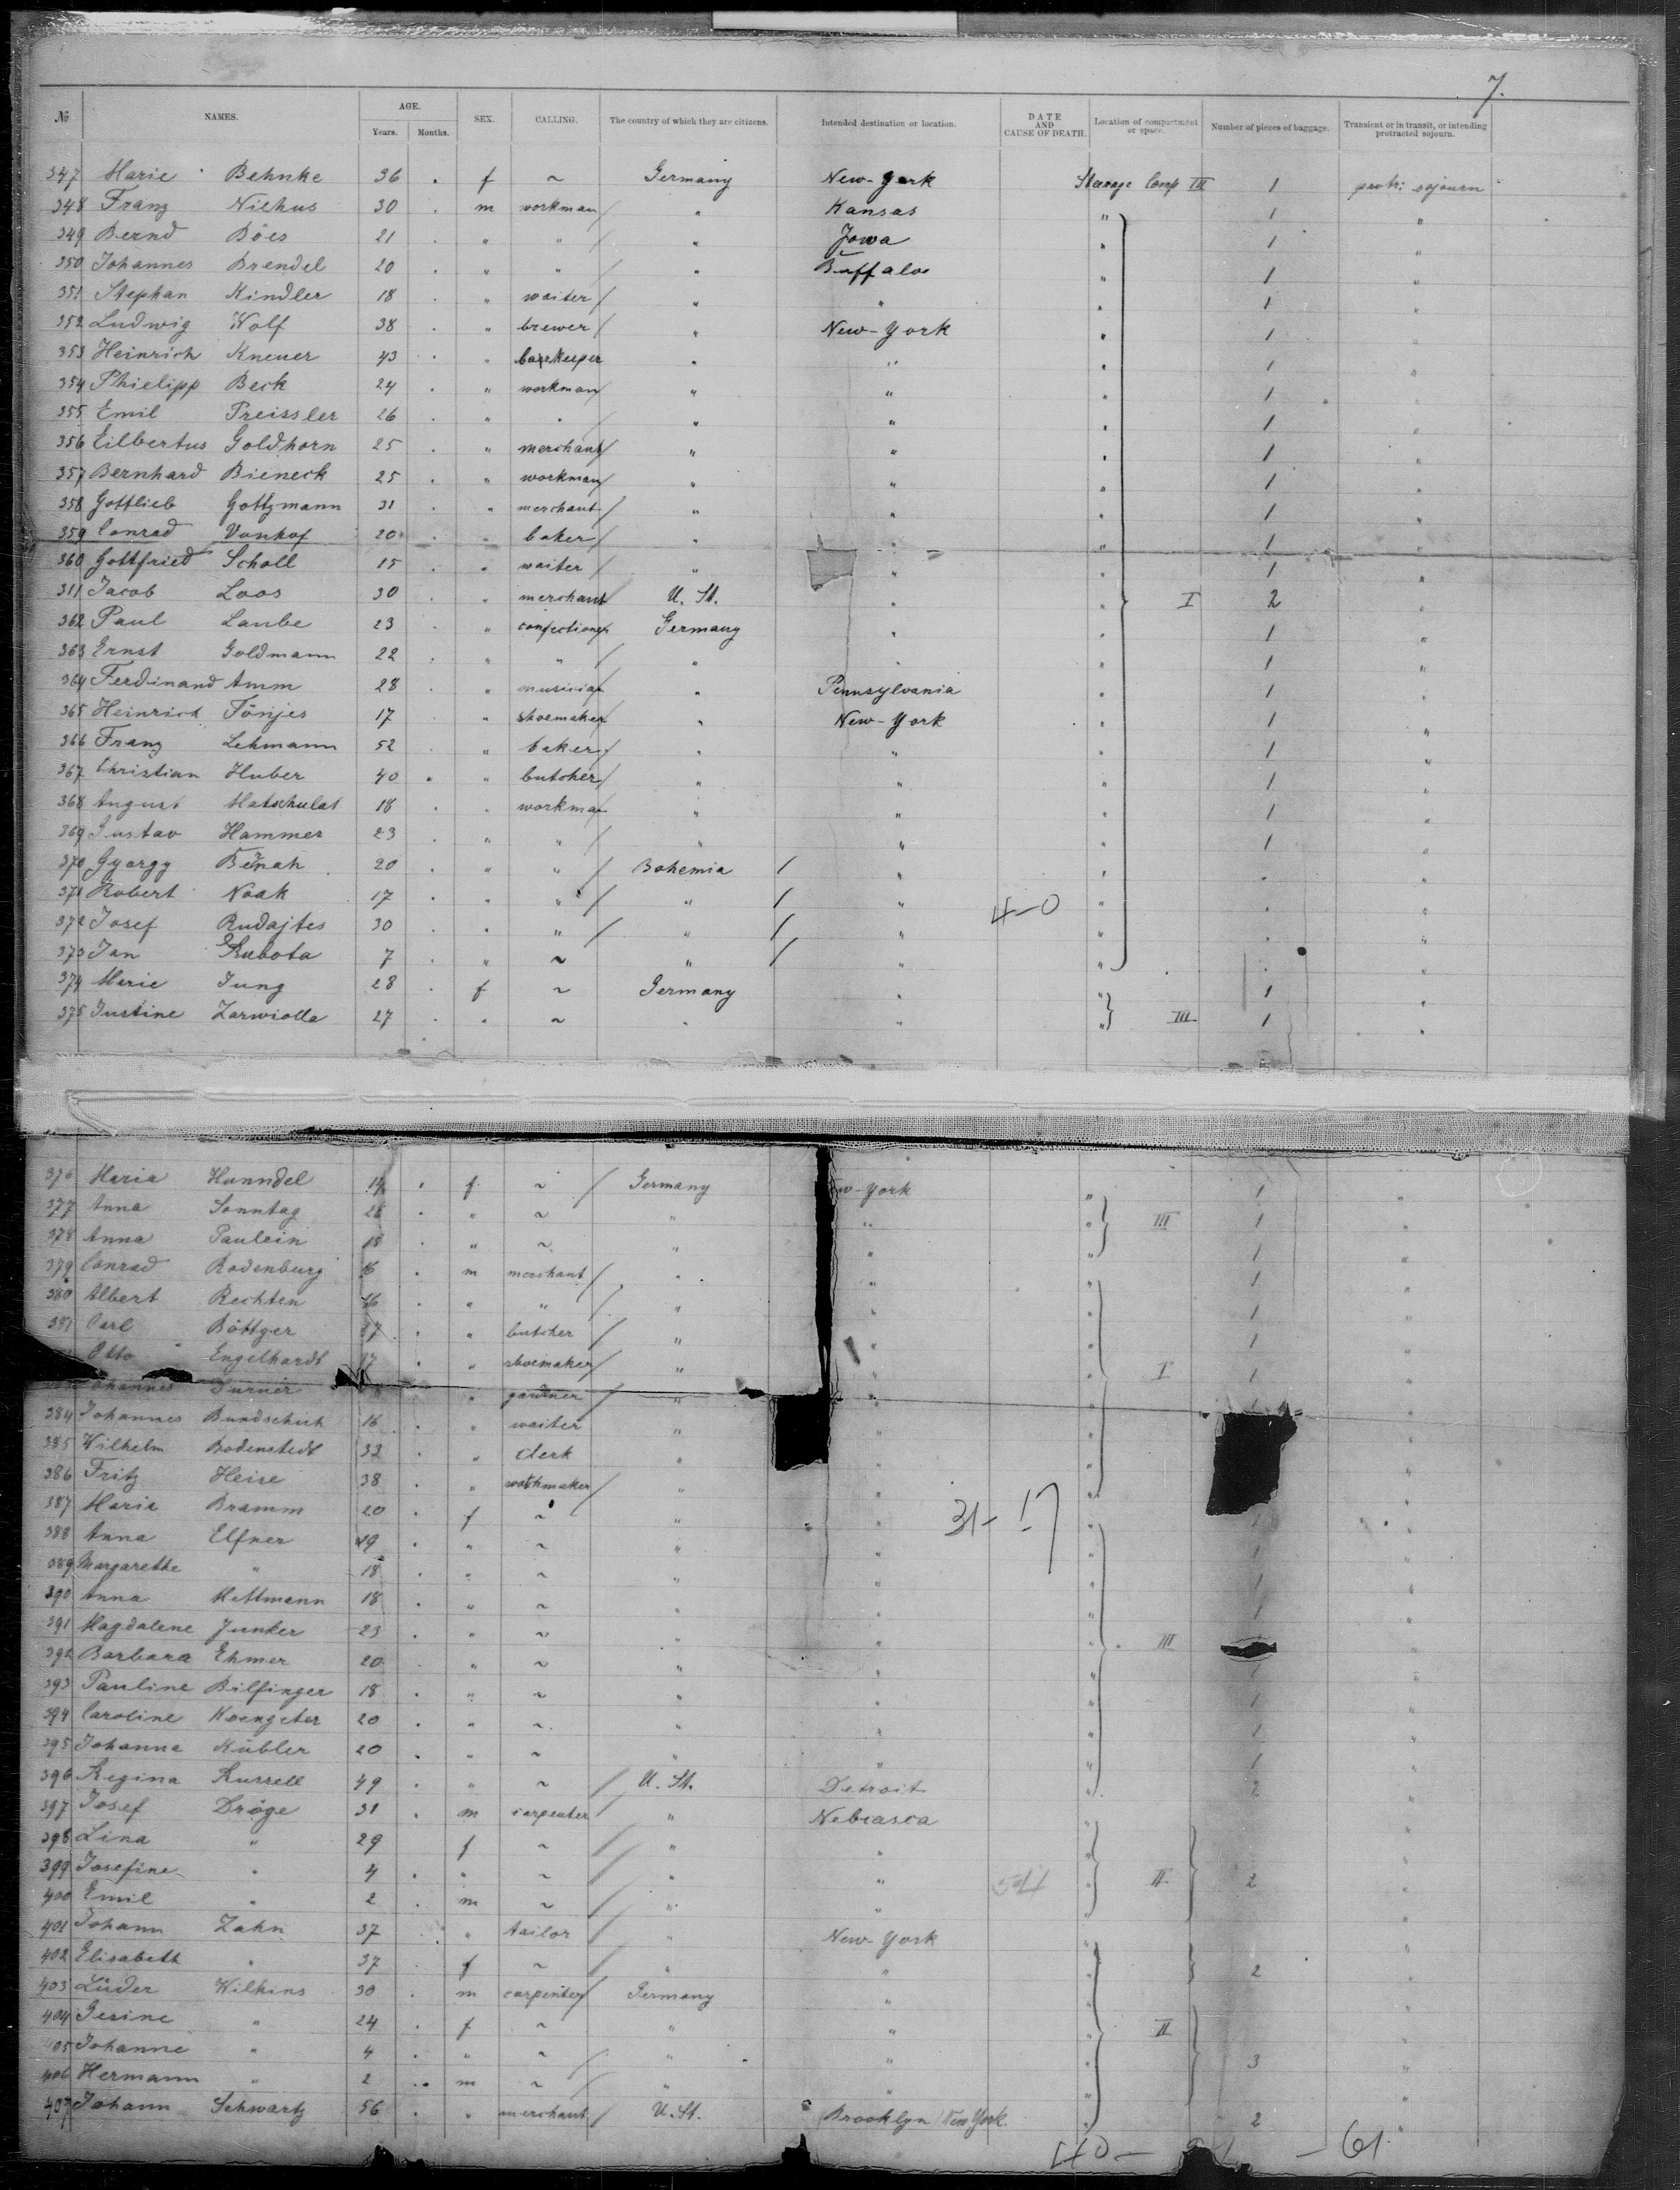 7.
№ NAMES. AGE. Years. Months. SEX. CALLING. The country of which they are citizens. Intended destination or location. DATE AND CAUSE OF DEATH. Location of compartment or space. Number of pieces of baggage. Transient or in transit, or intending protracted sojourn.
347 Marie Behnke 36 . f ~ Germany New-York Steerage Comp III 1 protr: sojourn
348 Franz Niehus 30 . m workman / " Kansas " 1 "
349 Bernd Böes 21 . " " / " Jowa " 1 "
350 Johannes Brendel 20 . " " / " Buffalo " 1 "
351 Stephan Kindler 18 . " waiter / " " " 1 "
352 Ludwig Wolf 38 . " brewer / " New-York " 1 "
353 Heinrich Kneuer 43 . " barkeeper " " " 1 "
354 Phielipp Beck 24 . " workman " " " 1 "
355 Emil Preissler 26 . " " " " " 1 "
356 Eilbertus Goldhorn 25 . " merchant / " " " 1 "
357 Bernhard Bieneck 25 . " workman / " " " 1 "
358 Gottlieb Gottzmann 31 . " merchant / " " " 1 "
359 Conrad Vonhof 20 . " baker / " " " 1 "
360 Gottfried Scholl 15 . " waiter / " " " 1 "
311 Jacob Loos 30 . " merchant U. St. " " I 2 "
362 Paul Laube 23 . " confectioner Germany " " 1 "
363 Ernst Goldmann 22 . " " / " " " 1 "
364 Ferdinand Amm 28 . " musician " Pennsylvania " 1 "
365 Heinrich Tönjes 17 . " shoemaker " New-York " 1 "
366 Franz Lehmann 52 . " baker / " " " 1 "
367 Christian Huber 40 . " butcher / " " " 1 "
368 August Matschulat 18 . " workman " " " 1 "
369 Gustav Hammer 23 . " " / " " " 1 "
370 Gyorgy 20 . " " / Bohemia / " " . "
371 Robert Noak 17 . " " / " / " 4-0 " . "
372 Josef Rudajtes 30 . " " / " / " " . "
373 Jan Kubota 7 . " ~ " / " " . "
374 Marie Jung 28 . f ~ Germany " " 1 "
375 Justine Zarwiolla 27 . " ~ " " " III 1 "
376 Maria Hunndel 14 . f ~ / Germany w-York " 1 "
377 Anna Sonntag 28 . " ~ " " " III 1 "
378 Anna Paulein 18 . " ~ " " " 1 "
379 Conrad Rodenburg 16 . m merchant / " " " 1 "
380 Albert Rechten 16 . " " / " " " 1 "
381 Carl Böttger 37 . " butcher / " " " 1 "
Otto Engelhardt 27 . " shoemaker / " " " I 1 "
ohannes Durner " gardner / " " " 1 "
384 Johannes Bundschuh 16 . " waiter " " " "
385 Wilhelm Bodenstedt 33 . " clerk " " " "
386 Fritz Heise 38 . " watchmaker / " " " "
387 Maria Bramm 20 . f ~ " " 31-17 " 1 "
388 Anna Elfner 19 . " ~ " " " 1 "
389 Margarethe " 18 . " ~ " " " 1 "
390 Anna Mettmann 18 . " ~ " " " 1 "
391 Magdalene Junker 23 . " ~ " " " III "
392 Barbara Ehmer 20 . " ~ " " " 1 "
393 Pauline Bilfinger 18 . " ~ " " " 1 "
394 Caroline Koengeter 20 . " ~ " " " 1 "
395 Johanna Kübler 20 . " ~ " " " 1 "
396 Regina Russell 49 . " ~ / U. St. Detroit " 2 "
397 Josef Dröge 31 . m carpenter / " Nebrasca " "
398 Lina " 29 f ~ / " " " "
399 Josefine " 4 . " ~ / " " 54 " II 2 "
400 Emil " 2 . m ~ / " " " "
401 Johann Zahn 37 . " tailor / " New-York " "
402 Elisabeth " 37 . f ~ / " " " 2 "
403 Lüder Wilkins 30 . m carpenter / Germany " " "
404 Gesine " 24 . f ~ " " " II "
405 Johanne " 4 . " ~ " " " 3 "
406 Hermann " 2 . m ~ / " " " "
407 Johann Schwartz 56 . " merchant / U. St. Brooklyn / New York " 2 "
40- - 61